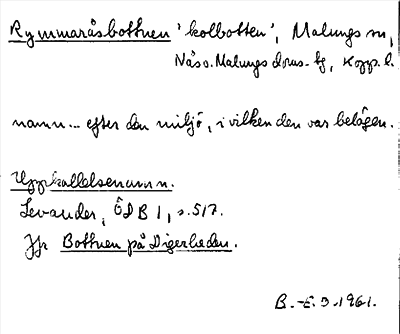 Rymmaråsbottnen 'kolbotten', Malungs sn,
Näs o. Malungs dvs-tg, Kopp. l.
namn... efter den miljö, i vilken den var belägen.
Uppkallelsenamn.
Levander, ÖDB 1, s. 517.
Jfr Bottnen på Digerheden.
B.-E. J. 1961.